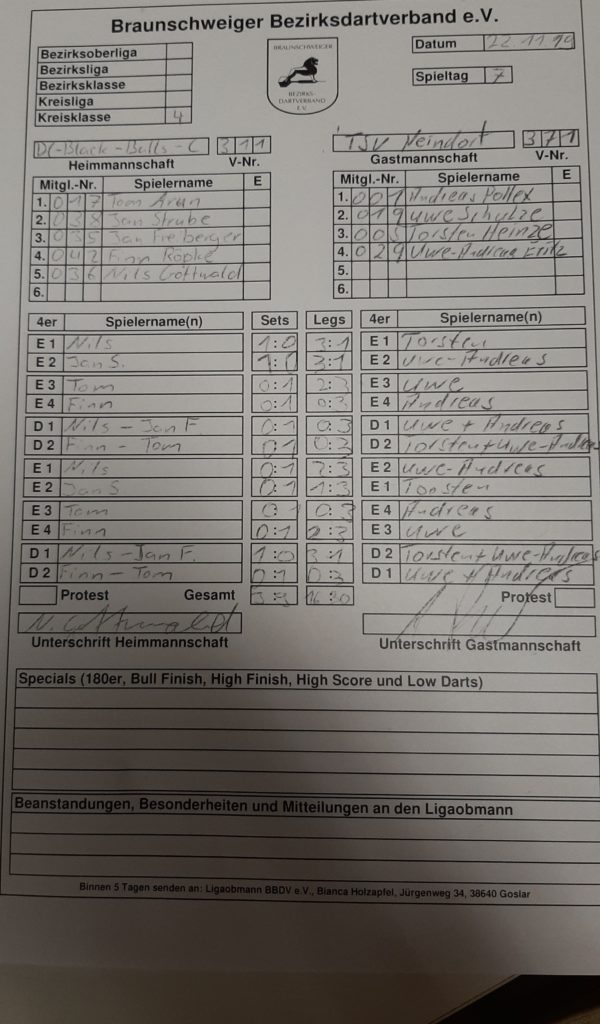 Braunschweiger Bezirksdartverband e.V.
Bezirksoberliga
Bezirksliga
Bezirksklasse
Kreisliga
Kreisklasse 4
BRAUNSCHWEIGER
BEZIRKS-
DARTVERBAND
E.V.
Datum 22.11.
Spieltag 7
DC-Black-Bulls-C 311
Heimmannschaft V-Nr.
TSV Neindorf 371
Gastmannschaft V-Nr.
Mitgl.-Nr. Spielername E
1. 017 Tom Arun
2. 038 Jan Strube
3. 035 Jan Freiberger
4. 042 Finn Röpke
5. 036 Nils Gottwald
6.
Mitgl.-Nr. Spielername E
1. 001 Andreas Pollex
2. 019 Uwe Schulze
3. 005 Torsten Heinze
4. 029 Uwe-Andreas Fritz
5.
6.
4er Spielername(n) Sets Legs 4er Spielername(n)
E 1 Nils 1:0 3:1 E 1 Torsten
E 2 Jan S. 1:0 3:1 E 2 Uwe-Andreas
E 3 Tom 0:1 2:3 E 3 Uwe
E 4 Finn 0:1 0:3 E 4 Andreas
D 1 Nils - Jan F 0:1 0:3 D 1 Uwe + Andreas
D 2 Finn - Tom 0:1 0:3 D 2 Torsten + Uwe-Andreas
E 1 Nils 0:1 2:3 E 2 Uwe-Andreas
E 2 Jan S 0:1 1:3 E 1 Torsten
E 3 Tom 0:1 0:3 E 4 Andreas
E 4 Finn 0:1 2:3 E 3 Uwe
D 1 Nils - Jan F. 1:0 3:1 D 2 Torsten + Uwe-Andreas
D 2 Finn - Tom 0:1 0:3 D 1 Uwe + Andreas
Protest Gesamt 3:9 16:30 Protest
N. Gottwald
Unterschrift Heimmannschaft Unterschrift Gastmannschaft
Specials (180er, Bull Finish, High Finish, High Score und Low Darts)
Beanstandungen, Besonderheiten und Mitteilungen an den Ligaobmann
Binnen 5 Tagen senden an: Ligaobmann BBDV e.V., Bianca Holzapfel, Jürgenweg 34, 38640 Goslar